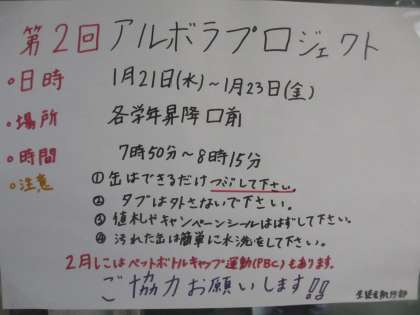 第2回アルボラプロジェクト
○日時 1月21日(水)～1月23日(金)
○場所 各学年昇降口前
○時間 7時50分～8時15分
○注意 ①缶はできるだけつぶして下さい。
② タブは外さないで下さい。
③ 値札やキャンペーンシールははずして下さい。
④ 汚れた缶は簡単に水洗をして下さい。
2月にはペットボトルキャップ運動(PBC)もあります。
ご協力お願いします!!
生徒会執行部